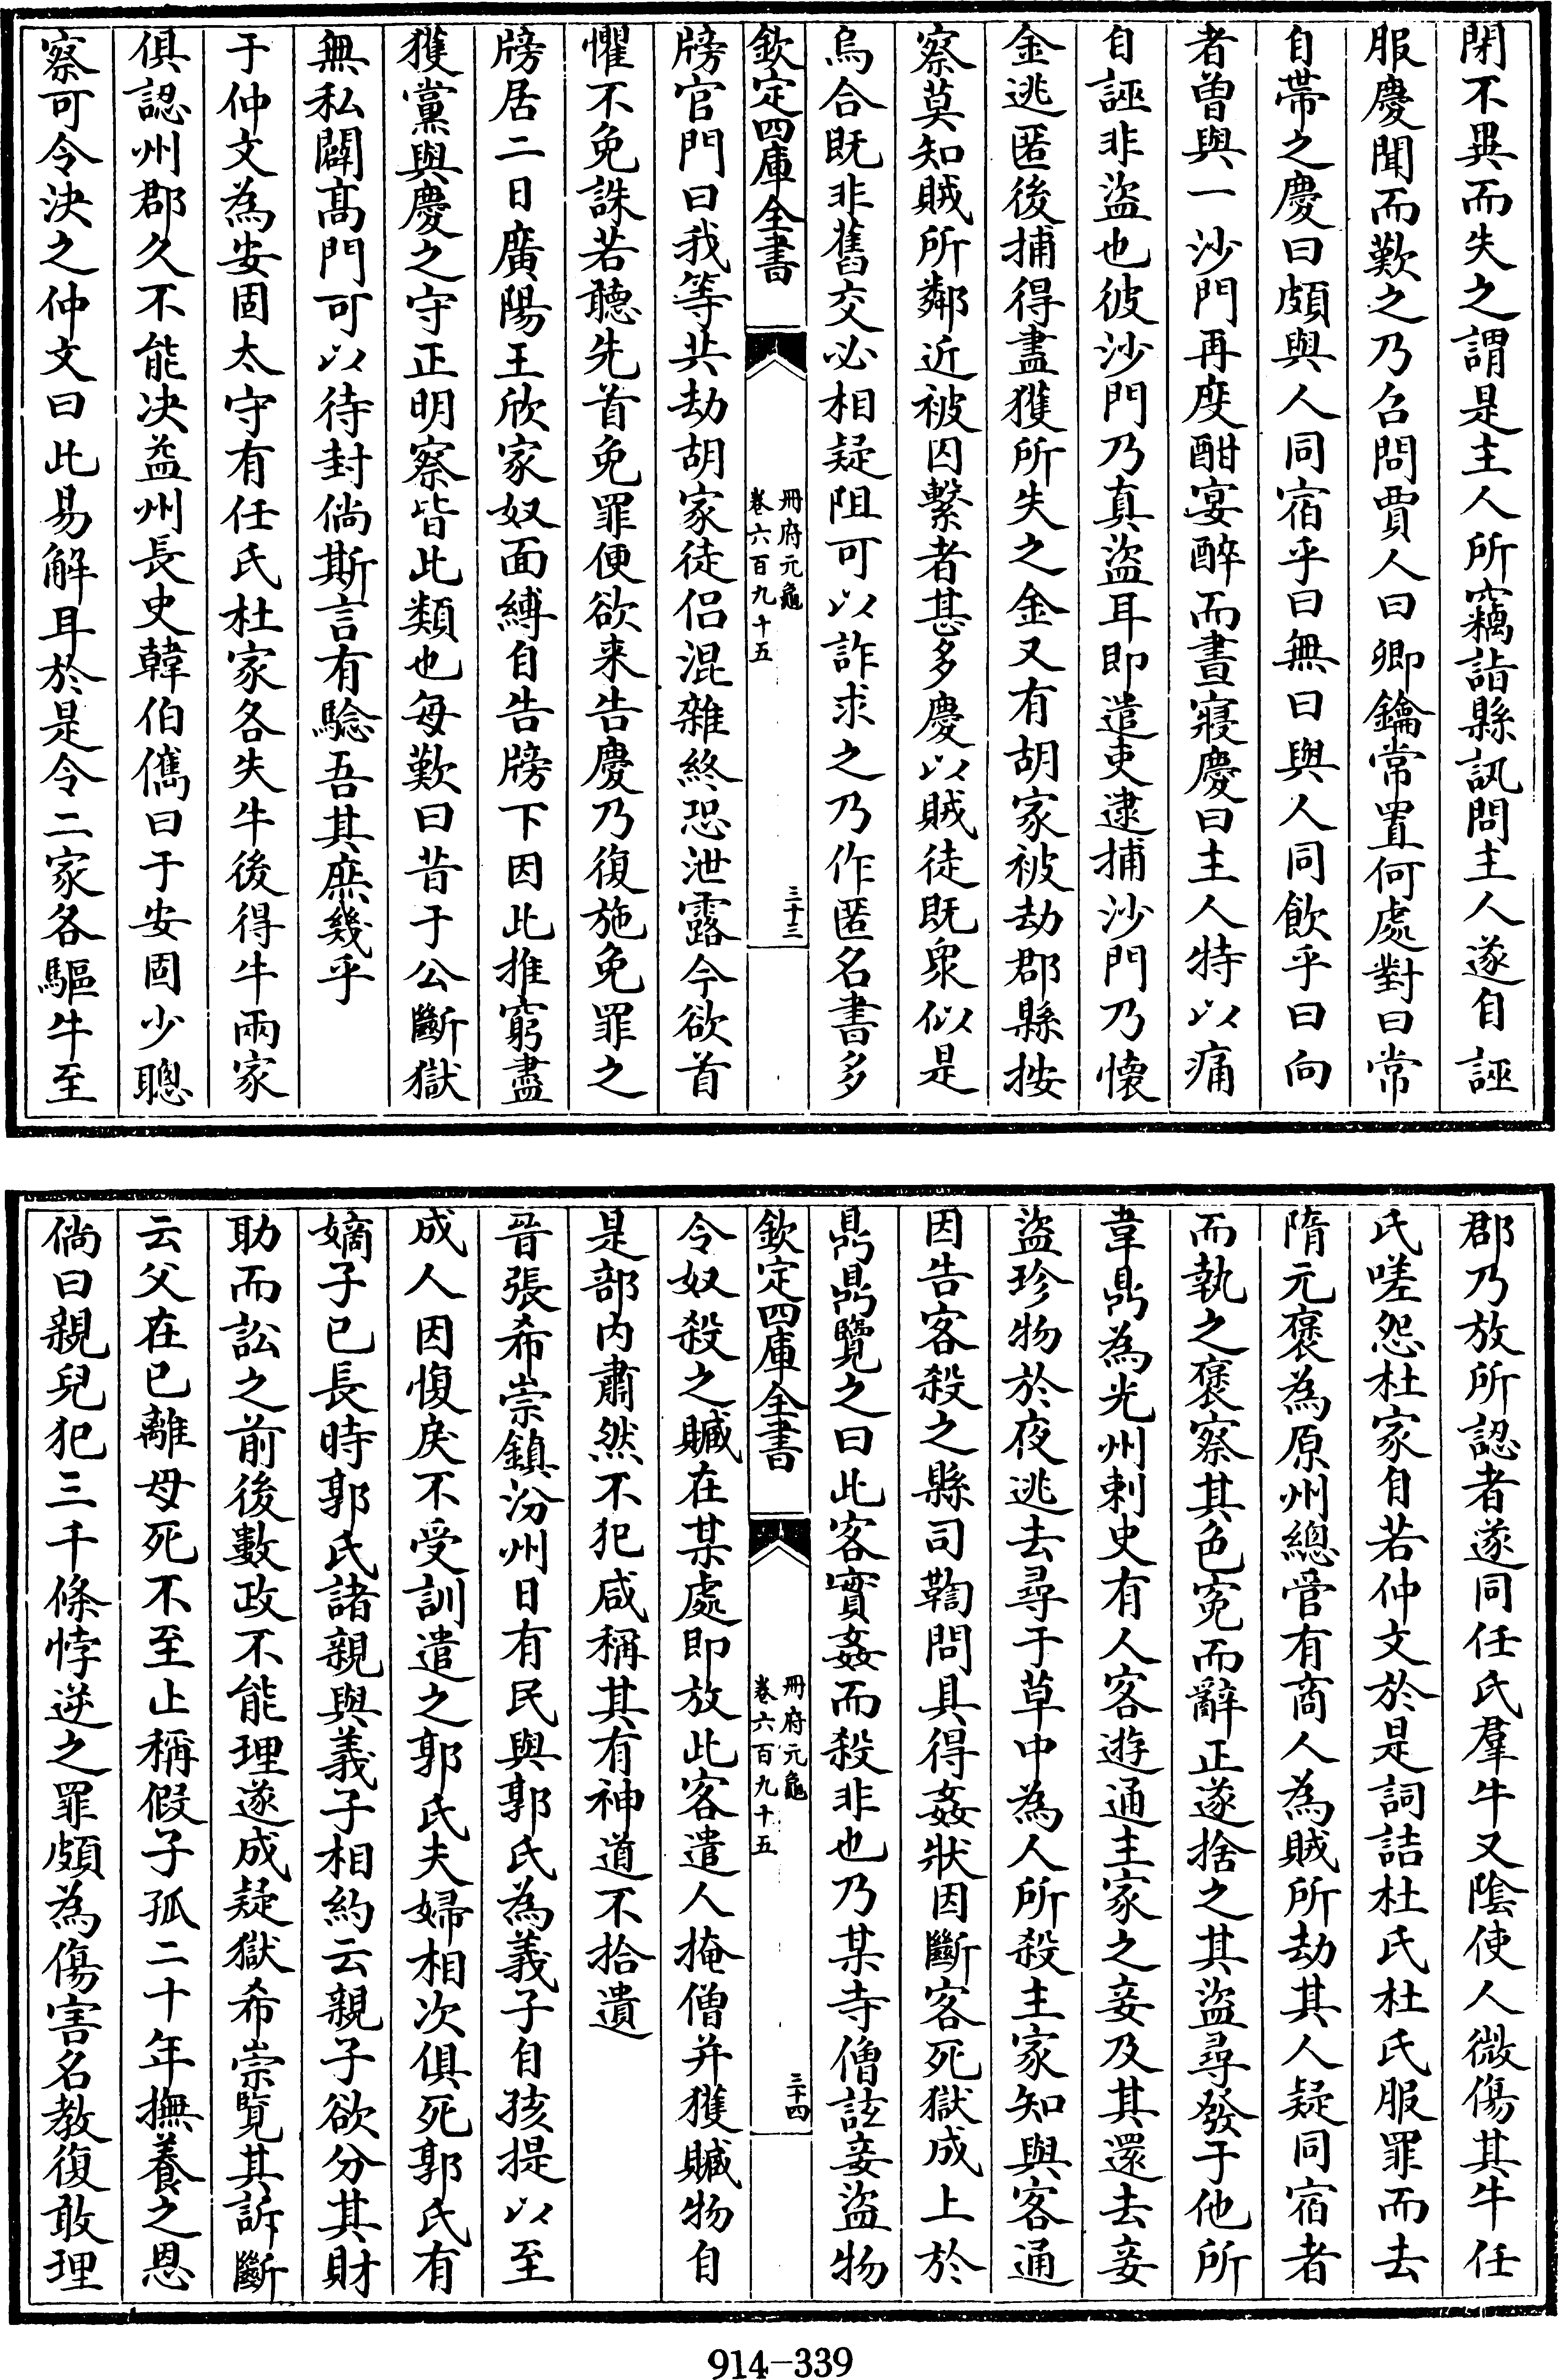 閉不異而失之謂是主人所竊詣縣訊問主人遂自誣
服慶聞而歎之乃召問賈人曰卿鑰常置何處對曰常
自帶之慶曰頗與人同宿乎曰無曰與人同飲乎曰向
者曽與一沙門再度酣宴醉而晝寢慶曰主人特以痛
自誣非盜也彼沙門乃真盜耳即遣吏逮捕沙門乃懷
金逃匿後捕得盡獲所失之金又有胡家被劫郡縣按
察莫知賊所鄰近被囚繫者甚多慶以賊徒既衆似是
烏合既非舊交必相疑阻可以詐求之乃作匿名書多
欽定四庫全書
冊府元龜
卷六百九十五
三十三
牓官門曰我等共劫胡家徒侣混雜終恐泄露今欲首
懼不免誅若聽先首免罪便欲来告慶乃復施免罪之
牓居二日廣陽王欣家奴面縛自告牓下因此推窮盡
獲黨與慶之守正明察皆此類也每歎曰昔于公斷獄
無私闢髙門可以待封倘斯言有騐吾其庶幾乎
于仲文為安固太守有任氏杜家各失牛後得牛兩家
俱認州郡久不能决益州長史韓伯儁曰于安固少聰
察可令決之仲文曰此易解耳於是令二家各驅牛至
郡乃放所認者遂同任氏羣牛又隂使人微傷其牛任
氏嗟怨杜家自若仲文於是詞詰杜氏杜氏服罪而去
隋元褒為原州總管有商人為賊所劫其人疑同宿者
而執之褒察其色寃而辭正遂捨之其盜尋發于他所
韋鼎為光州刺史有人客遊通主家之妾及其還去妾
盜珍物於夜逃去尋于草中為人所殺主家知與客通
因告客殺之縣司鞫問具得姦狀因斷客死獄成上於
鼎鼎覽之曰此客實姦而殺非也乃某寺僧詃妾盜物
欽定四庫全書
冊府元龜
卷六百九十五
三十四
令奴殺之贓在某處即放此客遣人掩僧并獲贓物自
是部内肅然不犯咸稱其有神道不拾遺
晉張希崇鎮汾州日有民與郭氏為義子自孩提以至
成人因愎戾不受訓遣之郭氏夫婦相次俱死郭氏有
嫡子已長時郭氏諸親與義子相約云親子欲分其財
助而訟之前後數政不能理遂成疑獄希崇覽其訴斷
云父在已離母死不至止稱假子孤二十年撫養之恩
倘曰親兒犯三千條悖逆之罪頗為傷害名教復敢理
914-339